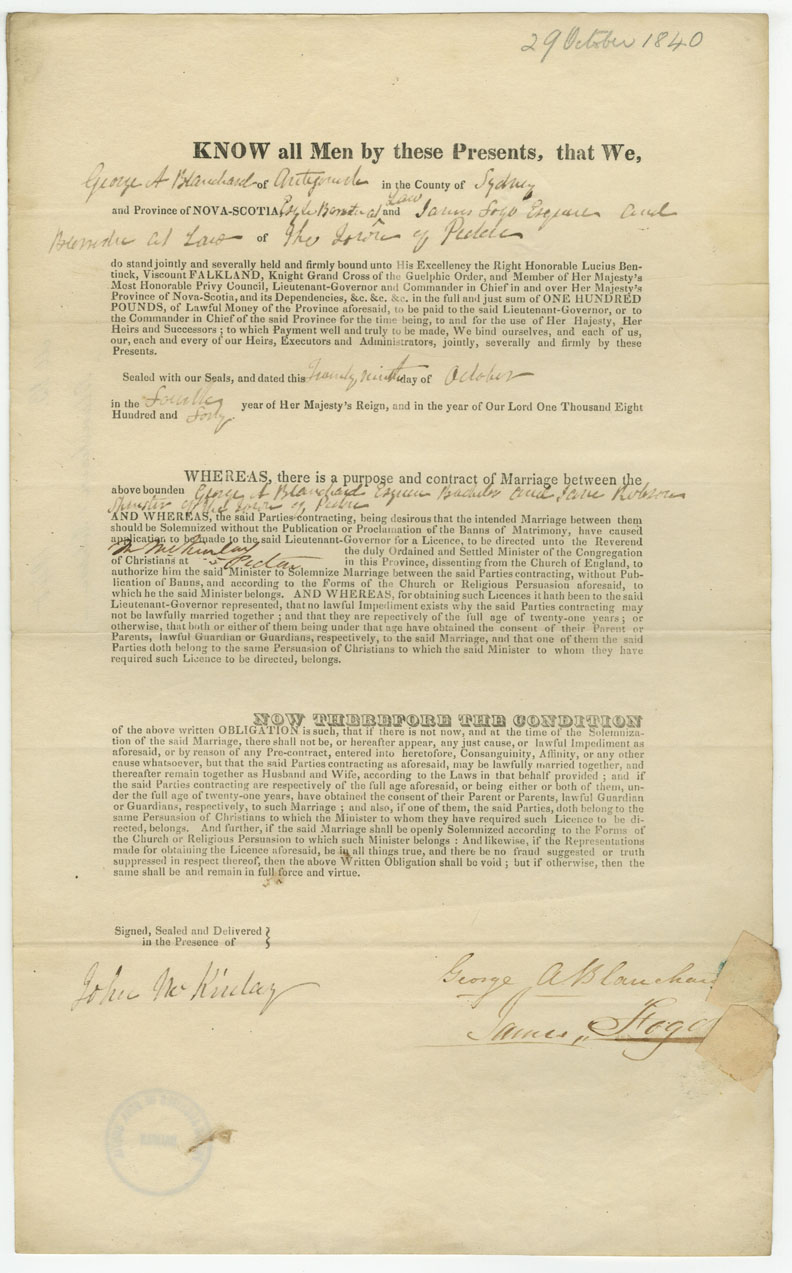 29 October 1840
KNOW all Men by these Presents, that We,
George A Blanchard of Antigonish in the County of Sydney
and Province of NOVA-SCOTIA, Esqr Barrister at Law and James Fogo Esquire and
Barrister at Law of The Town of Pictou
do stand jointly and severally held and firmly bound unto His Excellency the Right Honorable Lucius Ben-
tinck, Viscount FALKLAND, Knight Grand Cross of the Guelphic Order, and Member of Her Majesty's
Most Honorable Privy Council, Lieutenant-Governor and Commander in Chief in and over Her Majesty's
Province of Nova-Scotia, and its Dependencies, &c. &c. &c. in the full and just sum of ONE HUNDRED
POUNDS, of Lawful Money of the Province aforesaid, to be paid to the said Lieutenant-Governor, or to
the Commander in Chief of the said Province for the time being, to and for the use of Her Hajesty, Her
Heirs and Successors ; to which Payment well and truly to be made, We bind ourselves, and each of us,
our, each and every of our Heirs, Executors and Administrators, jointly, severally and firmly by these
Presents.
Sealed with our Seals, and dated this Twenty ninth day of October
in the Fourth year of Her Majesty's Reign, and in the year of Our Lord One Thousand Eight
Hundred and Forty
WHEREAS, there is a purpose and contract of Marriage between the
above bounden George A Blanchard Esquire Bachelor and Jane Robson
Spinster of the Town of Pictou
AND WHEREAS, the said Parties contracting, being desirous that the intended Marriage between them
should be Solemnized without the Publication or Proclamation of the Banns of Matrimony, have caused
application to be made to the said Lieutenant-Governor for a Licence, to be directed unto the Reverend
Mr McKinlay the duly Ordained and Settled Minister of the Congregation
of Christians at Pictou in this Province, dissenting from the Church of England, to
authorize him the said Minister to Solemnize Marriage between the said Parties contracting, without Pub-
lication of Banns, and according to the Forms of the Church or Religious Persuasion aforesaid, to
which he the said Minister belongs. AND WHEREAS, for obtaining such Licences it hath been to the said
Lieutenant-Governor represented, that no lawful Impediment exists why the said Parties contracting may
not be lawfully married together ; and that they are repectively of the full age of twenty-one years ; or
otherwise, that both or either of them being under that age have obtained the consent of their Parent or
Parents, lawful Guardian or Guardians, respectively, to the said Marriage, and that one of them the said
Parties doth belong to the same Persuasion of Christians to which the said Minister to whom they have
required such Licence to be directed, belongs.
NOW THEREFORE THE CONDITION
of the above written OBLIGATION is such, that if there is not now, and at the time of the Solemniza-
tion of the said Marriage, there shall not be, or hereafter appear, any just cause, or lawful Impediment as
aforesaid, or by reason of any Pre-contract, entered into heretofore, Consanguinity, Affinity, or any other
cause whatsoever, but that the said Parties contracting as aforesaid, may be lawfully married together, and
thereafter remain together as Husband and Wife, according to the Laws in that behalf provided ; and if
the said Parties contracting are respectively of the full age aforesaid, or being either or both of them, un-
der the full age of twenty-one years, have obtained the consent of their Parent or Parents, lawful Guardian
or Guardians, respectively, to such Marriage ; and also, if one of them, the said Parties, doth belong to the
same Persuasion of Christians to which the Minister to whom they have required such Licence to be di-
rected, belongs. And further, if the said Marriage shall be openly Solemnized according to the Forms of
the Church or Religious Persuasion to which such Minister belongs : And likewise, if the Representations
made for obtaining the Licence aforesaid, be in all things true, and there be no fraud suggested or truth
suppressed in respect thereof, then the above Written Obligation shall be void ; but if otherwise, then the
same shall be and remain in full force and virtue.
Signed, Sealed and Delivered
in the Presence of
John McKinlay
George A Blanchard
James Fogo